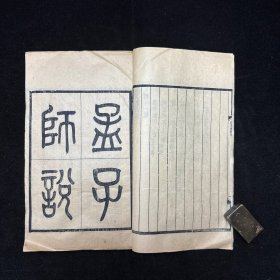 孟子
師說